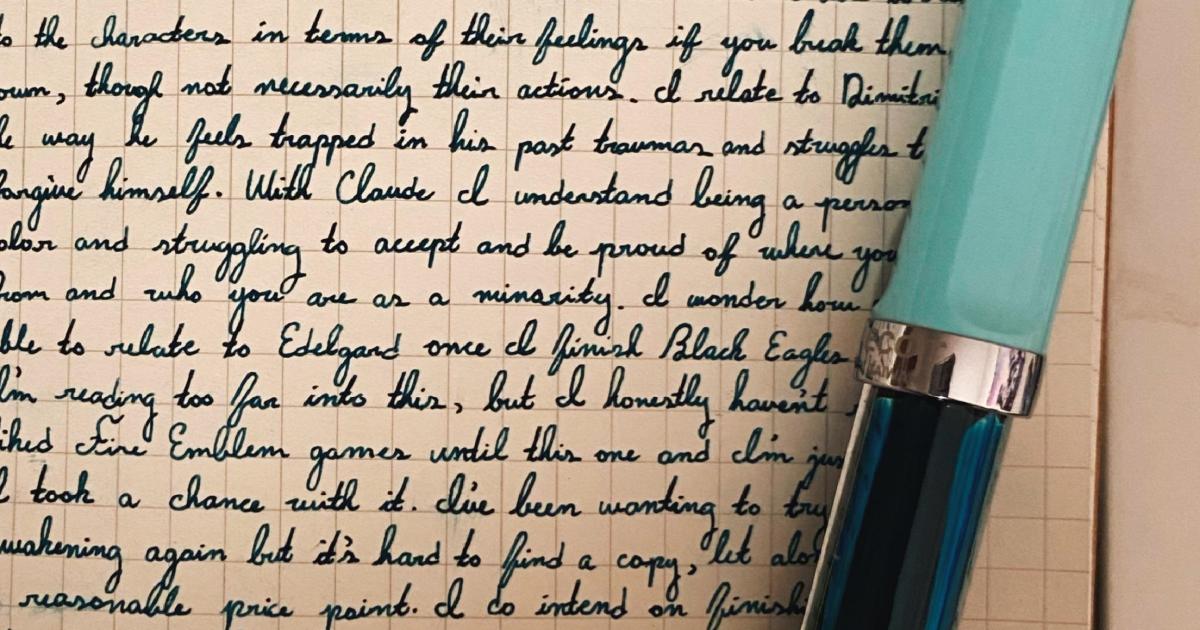 to the characters in terms of their feelings if you break them
own, though not necessarily their actions. I relate to Dimitri
way he feels trapped in his past traumas and struggles t
forgive himself. With Claude I understand being a person
olor and struggling to accept and be proud of where you
rom and who you are as a minority. I wonder how
ble to relate to Edelgard once I finish Black Eagles
I'm reading too far into this, but I honestly haven't
iked Fire Emblem games until this one and I'm jus
I took a chance with it. I've been wanting to try
wakening again but it's hard to find a copy, let alo
reasonable price point. I do intend on finishi